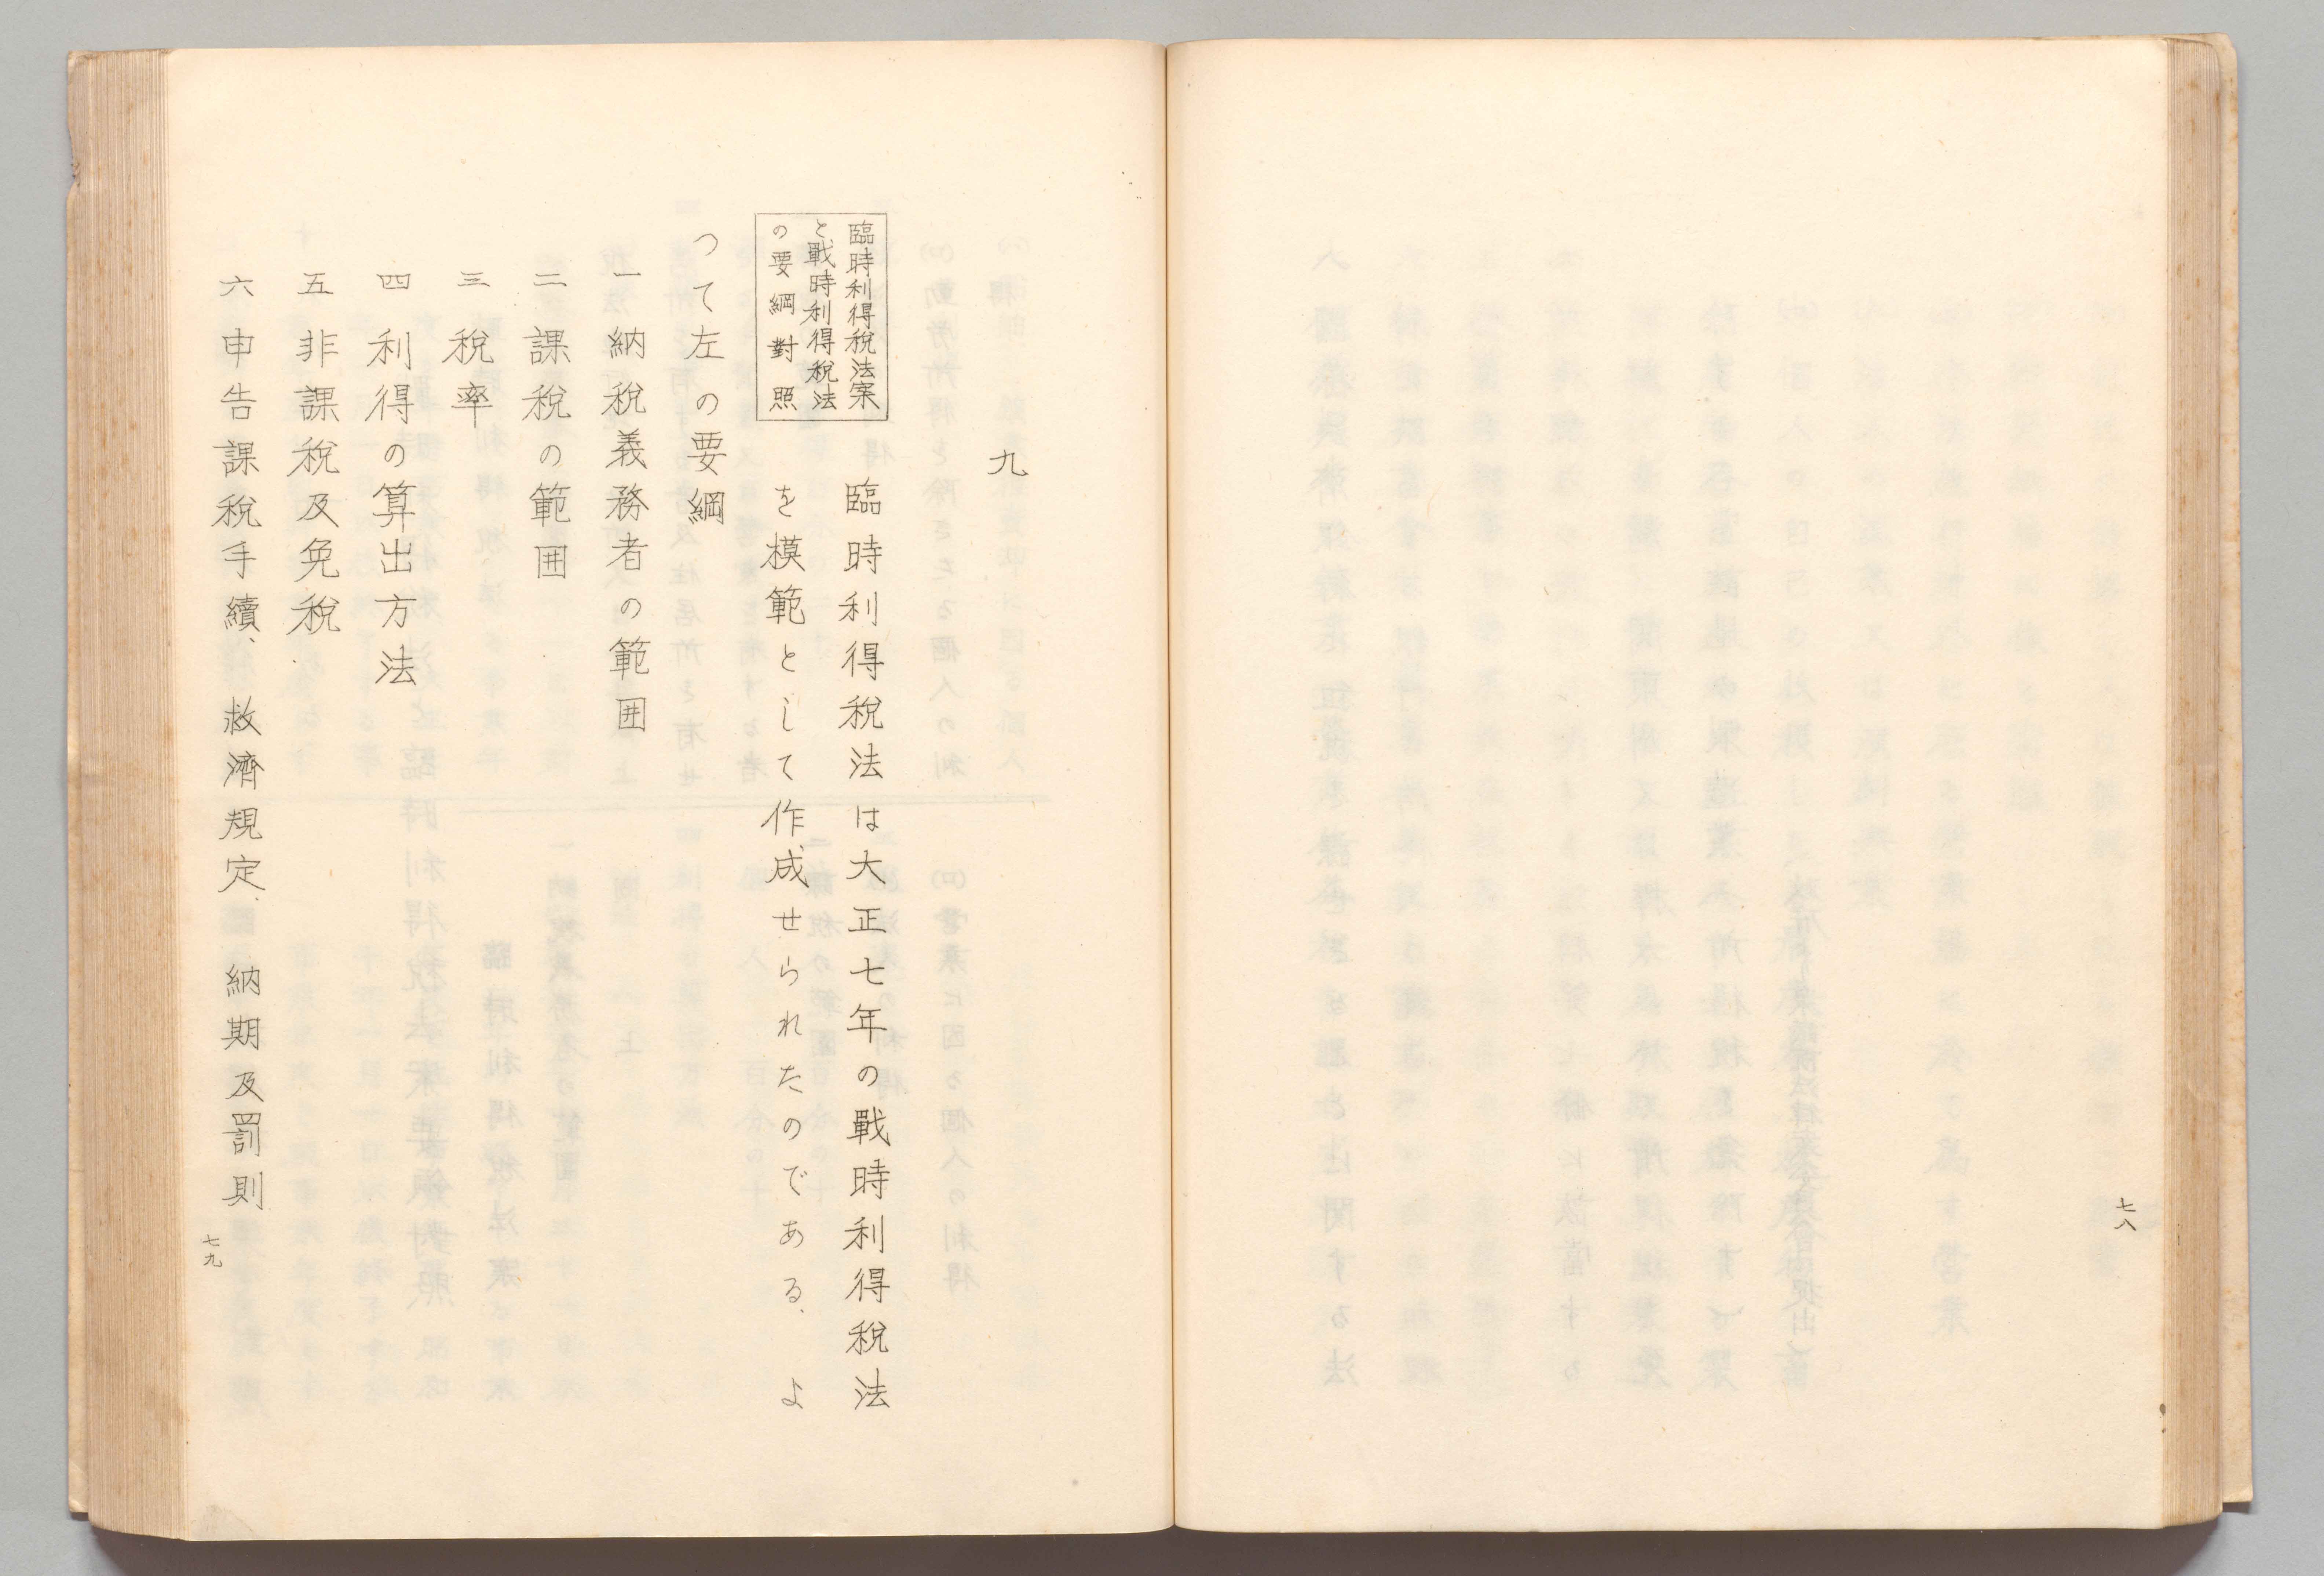 七八
九
臨時利得税法案
と戰時利得税法
の要綱對照
臨時利得税法は大正七年の戰時利得税法
を模範として作成せられたのである、よ
つて左の要綱
一 納税義務者の範囲
二 課税の範囲
三 税率
四 利得の算出方法
五 非課税及免税
六 申告課税手續、救濟規定、納期及罰則
七九